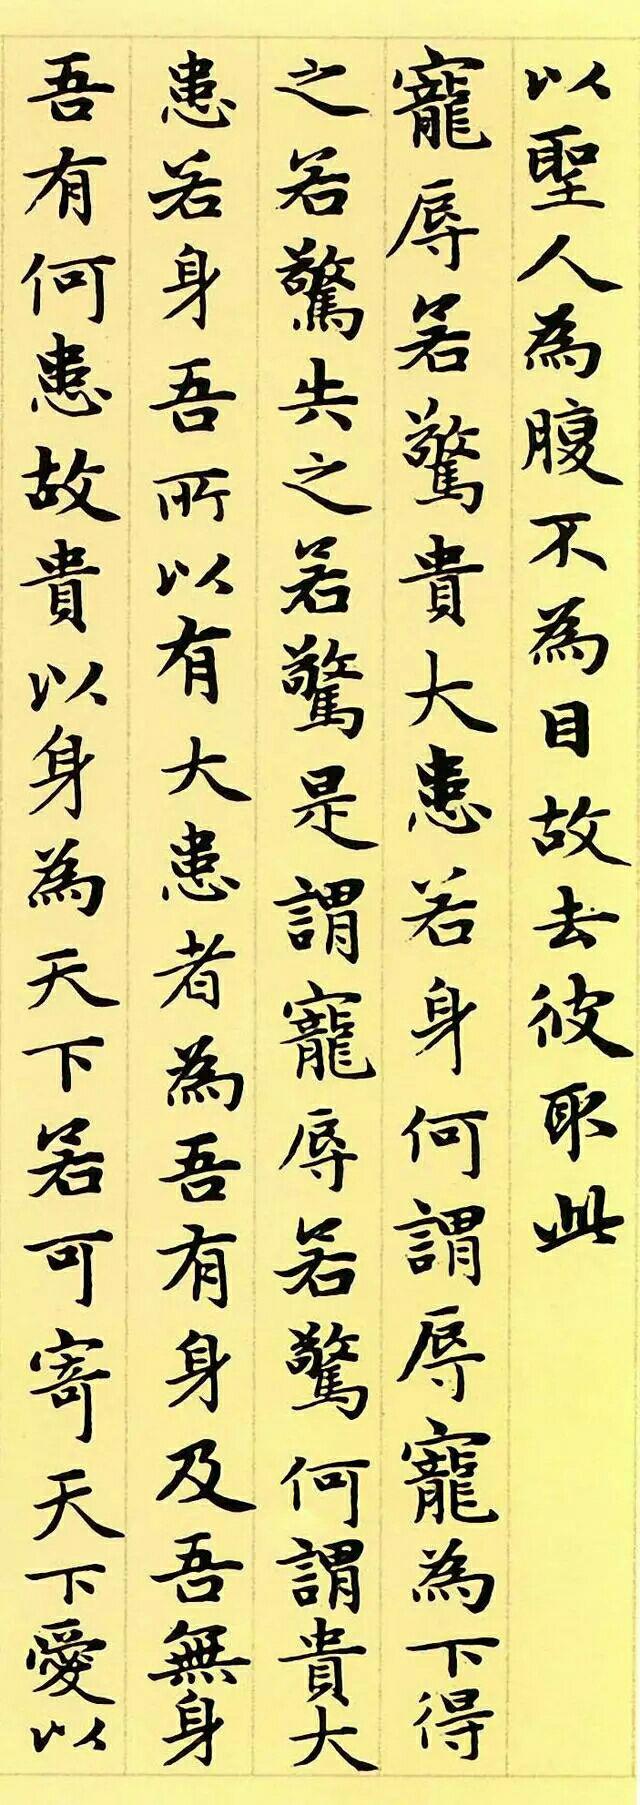 以聖人為腹不為目故去彼取此
寵辱若驚貴大患若身何謂辱寵為下得
之若驚失之若驚是謂寵辱若驚何謂貴大
患若身吾所以有大患者為吾有身及吾無身
吾有何患故貴以身為天下若可寄天下愛以